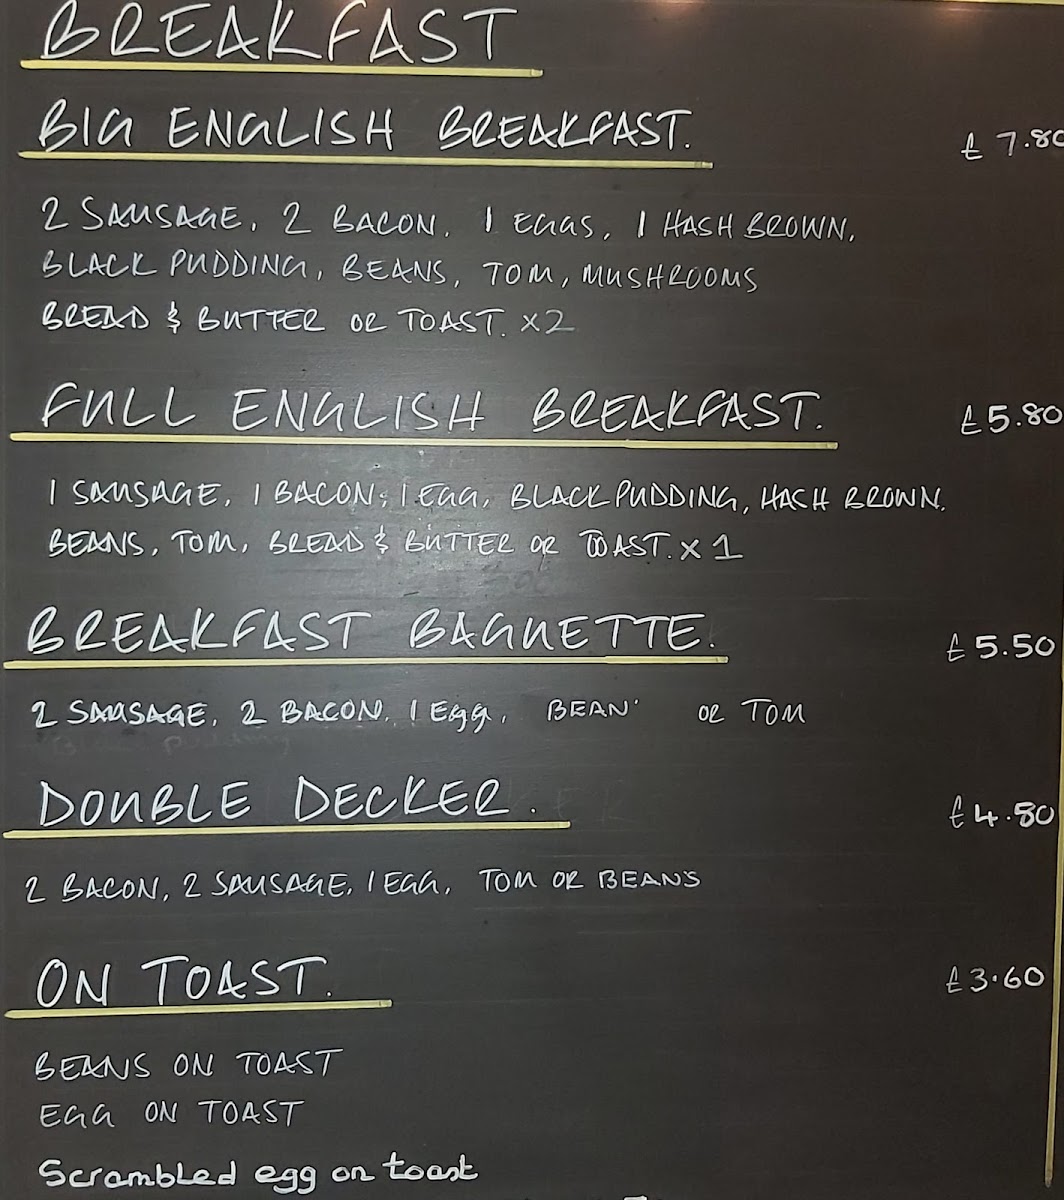 BREAKFAST
BIG ENGLISH BREAKFAST. £7.80
2 SAUSAGE, 2 BACON, 1 EGGS, 1 HASH BROWN,
BLACK PUDDING, BEANS, TOM, MUSHROOMS
BREAD & BUTTER OR TOAST. x2
FULL ENGLISH BREAKFAST. £5.80
1 SAUSAGE, 1 BACON, 1 EGG, BLACK PUDDING, HASH BROWN,
BEANS, TOM, BREAD & BUTTER OR TOAST. x 1
BREAKFAST BAGUETTE. £5.50
2 SAUSAGE, 2 BACON, 1 Egg, BEAN' OR TOM
DOUBLE DECKER. £4.80
2 BACON, 2 SAUSAGE, 1 EGG, TOM OR BEANS
ON TOAST. £3.60
BEANS ON TOAST
EGG ON TOAST
Scrambled egg on toast